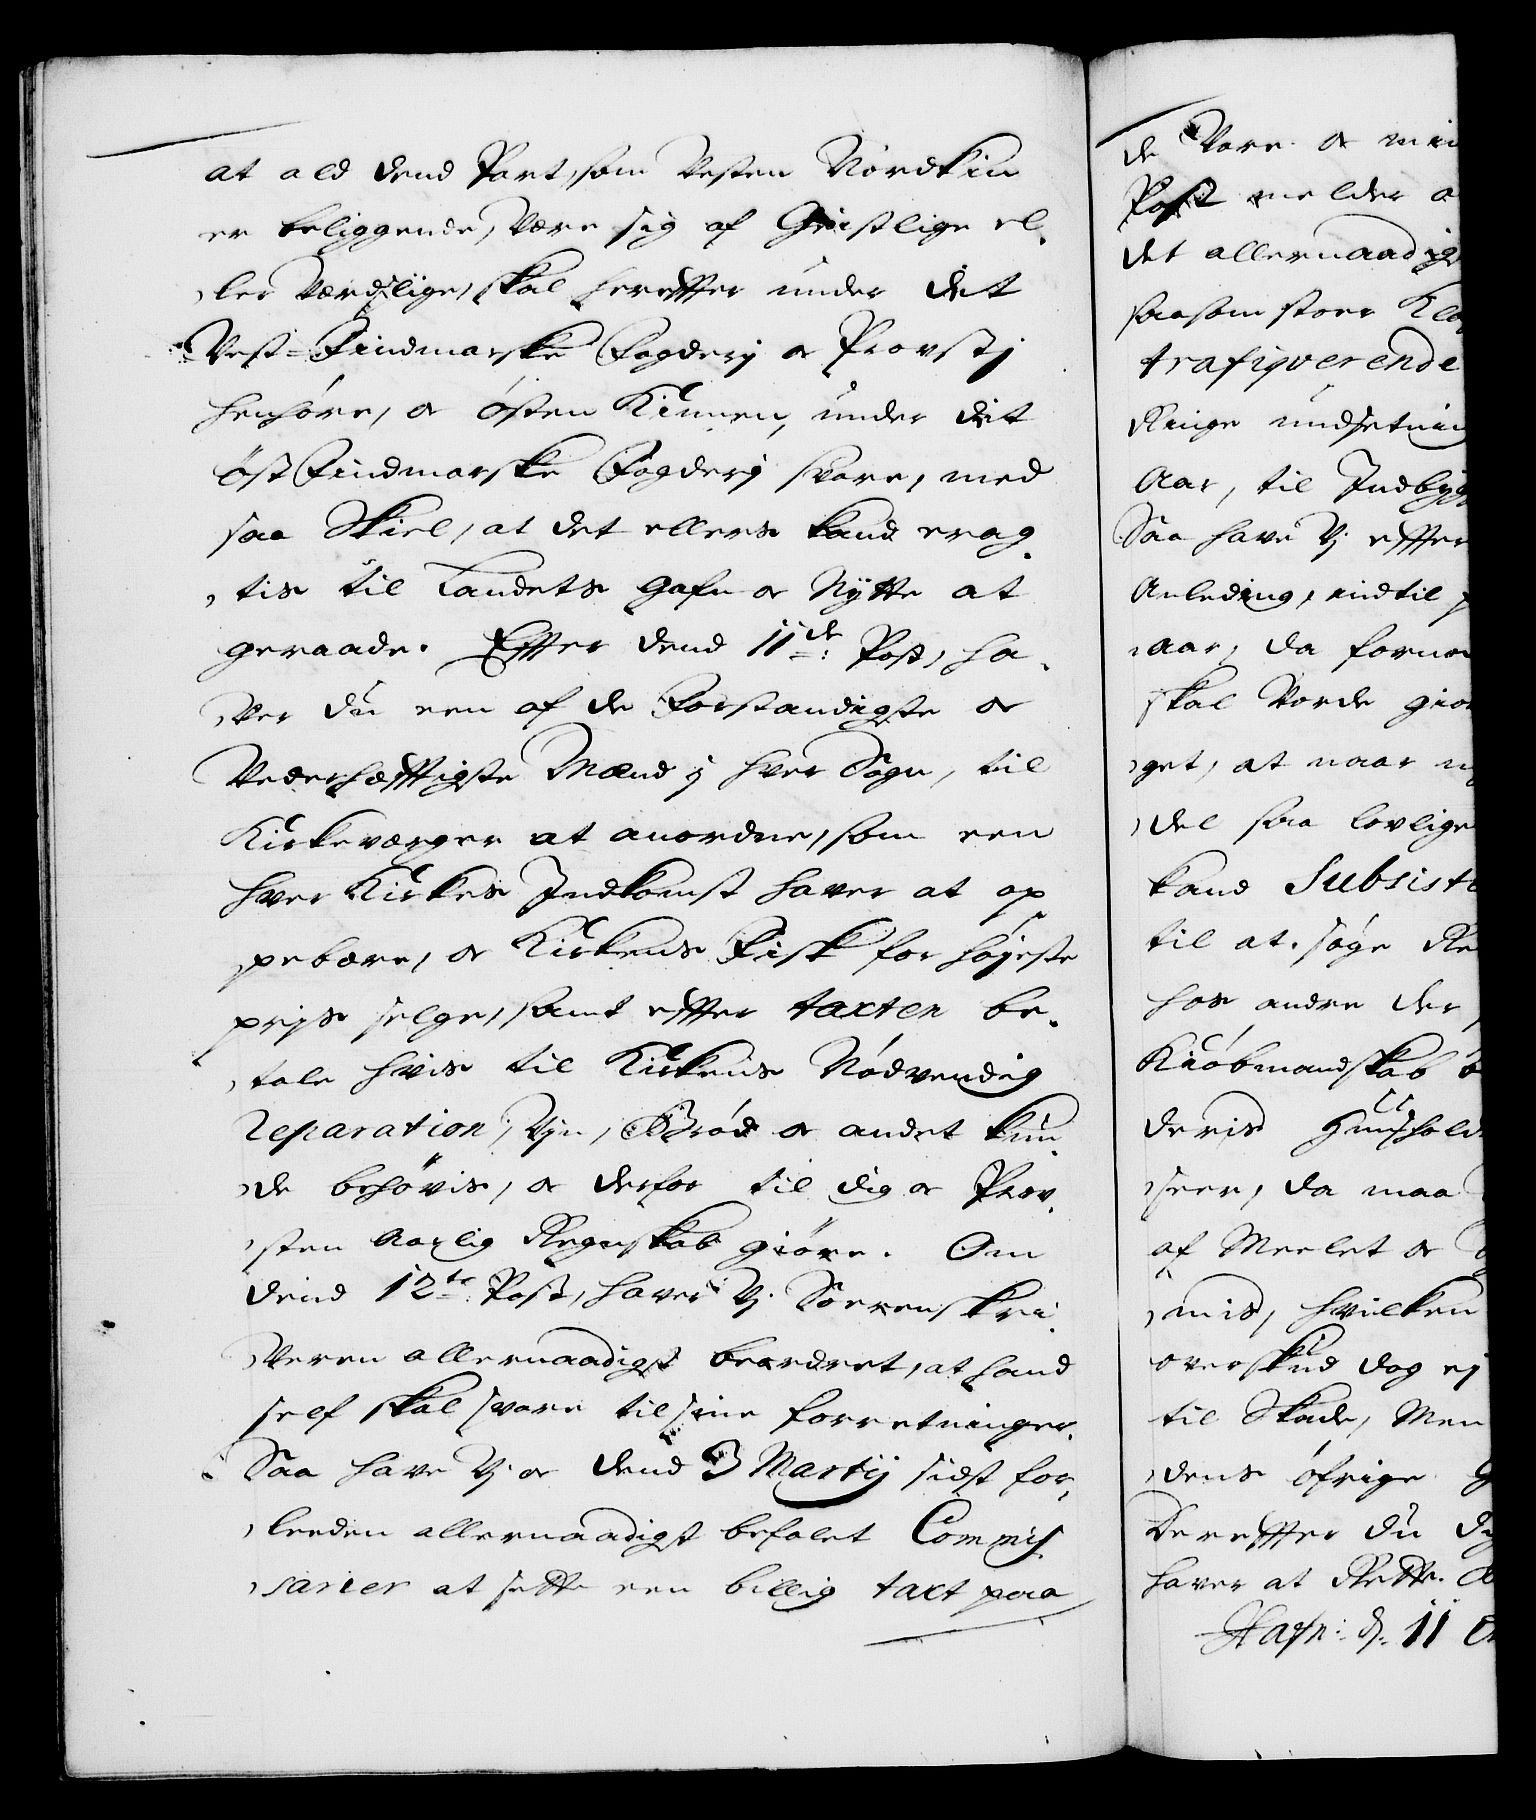 at ald dend Part, som Vesten Nordkin
er beliggende, Være sig af Geistlige el,
,ler Værdslige, skal herefter under det
Vest-Findmarske Fogderj oc Provstj
henhøre, oc østen Kinnen, under det
øst Findmarske Fogderj svare, med
saa Skiel, at det ellers kand erag,
,tis til Landets Gafn oc Nytte at
geraade. Efter dend 11de: Post, ha,
,Ver du een af de Forstandigste oc
Vederhæfftigste Mænd j hver Sogn, til
Kirkeværger at anordne, som een
hver Kirkes Indkomst haver at op
,pebære, oc Kirkens Fisk for høyeste
prijs selge, samt effter taxten be,
,tale hvis til Kirkens Nødvendig
Reparation, Vjn, Brød oc andet kun,
,de behøvis, oc derfor til dig oc Prov,
,sten Aarlig Regnskab giøre. Om
dend 12te: Post, haver Vj Sorenskri,
,Veren allernaadigst beordret, at hand
self skal svare til sine forretninger.
Saa have Vj oc dend 3 Martij sidst for,
,leeden allernaadigst befalet Commis,
,sarier at sette een billig taxt paa
de Vare oc min
Post melder a
det allernaadig
saasom stoer Kla
trafiqverende
Ringe undsetnin
Aar, til Indbyg
Saa have Vj effter
Anleding, indtil
,aar, da forne
skal Vorde giør
,get, at naar
,del saa lovlige
kand Subsiste
til at søge Re
hos andre der
Kiøbmandskab
deris Huushold
,seer, da maa
af Meelet oc
,mis, hvilken
overskud dog ej
til Skade, Men
,dens øfrige
Dereffter du
haver at Rette.
Hafn: d. 11